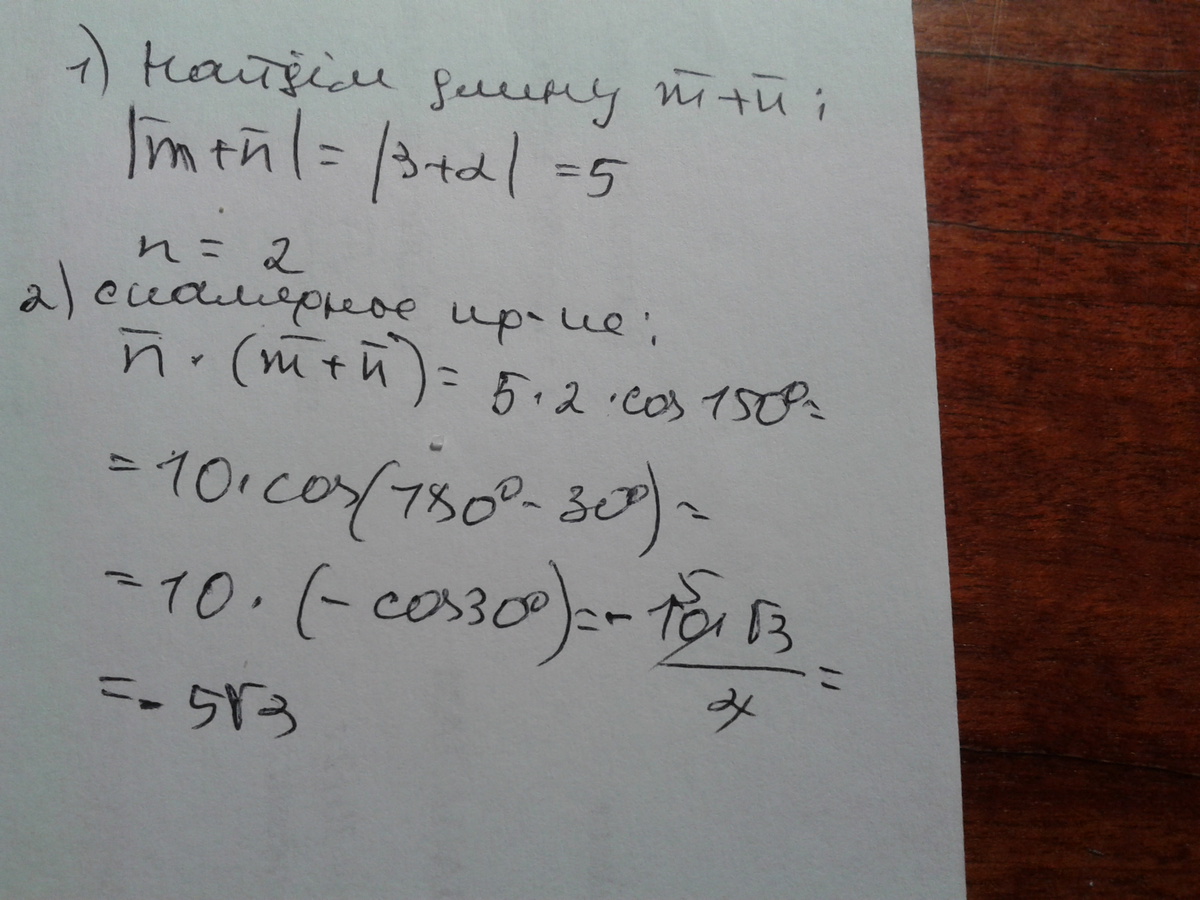 1) Найдём длину m̅+n̅:
|m̅+n̅|=|3+2|=5
n = 2
2) скалярное пр-ие:
n̅·(m̅+n̅)= 5·2·cos150°=
=10·cos(180°-30°)=
=10·(-cos30°)=-\frac{\cancel{10}^{5}·√3}{\cancel{2}}=
=-5√3